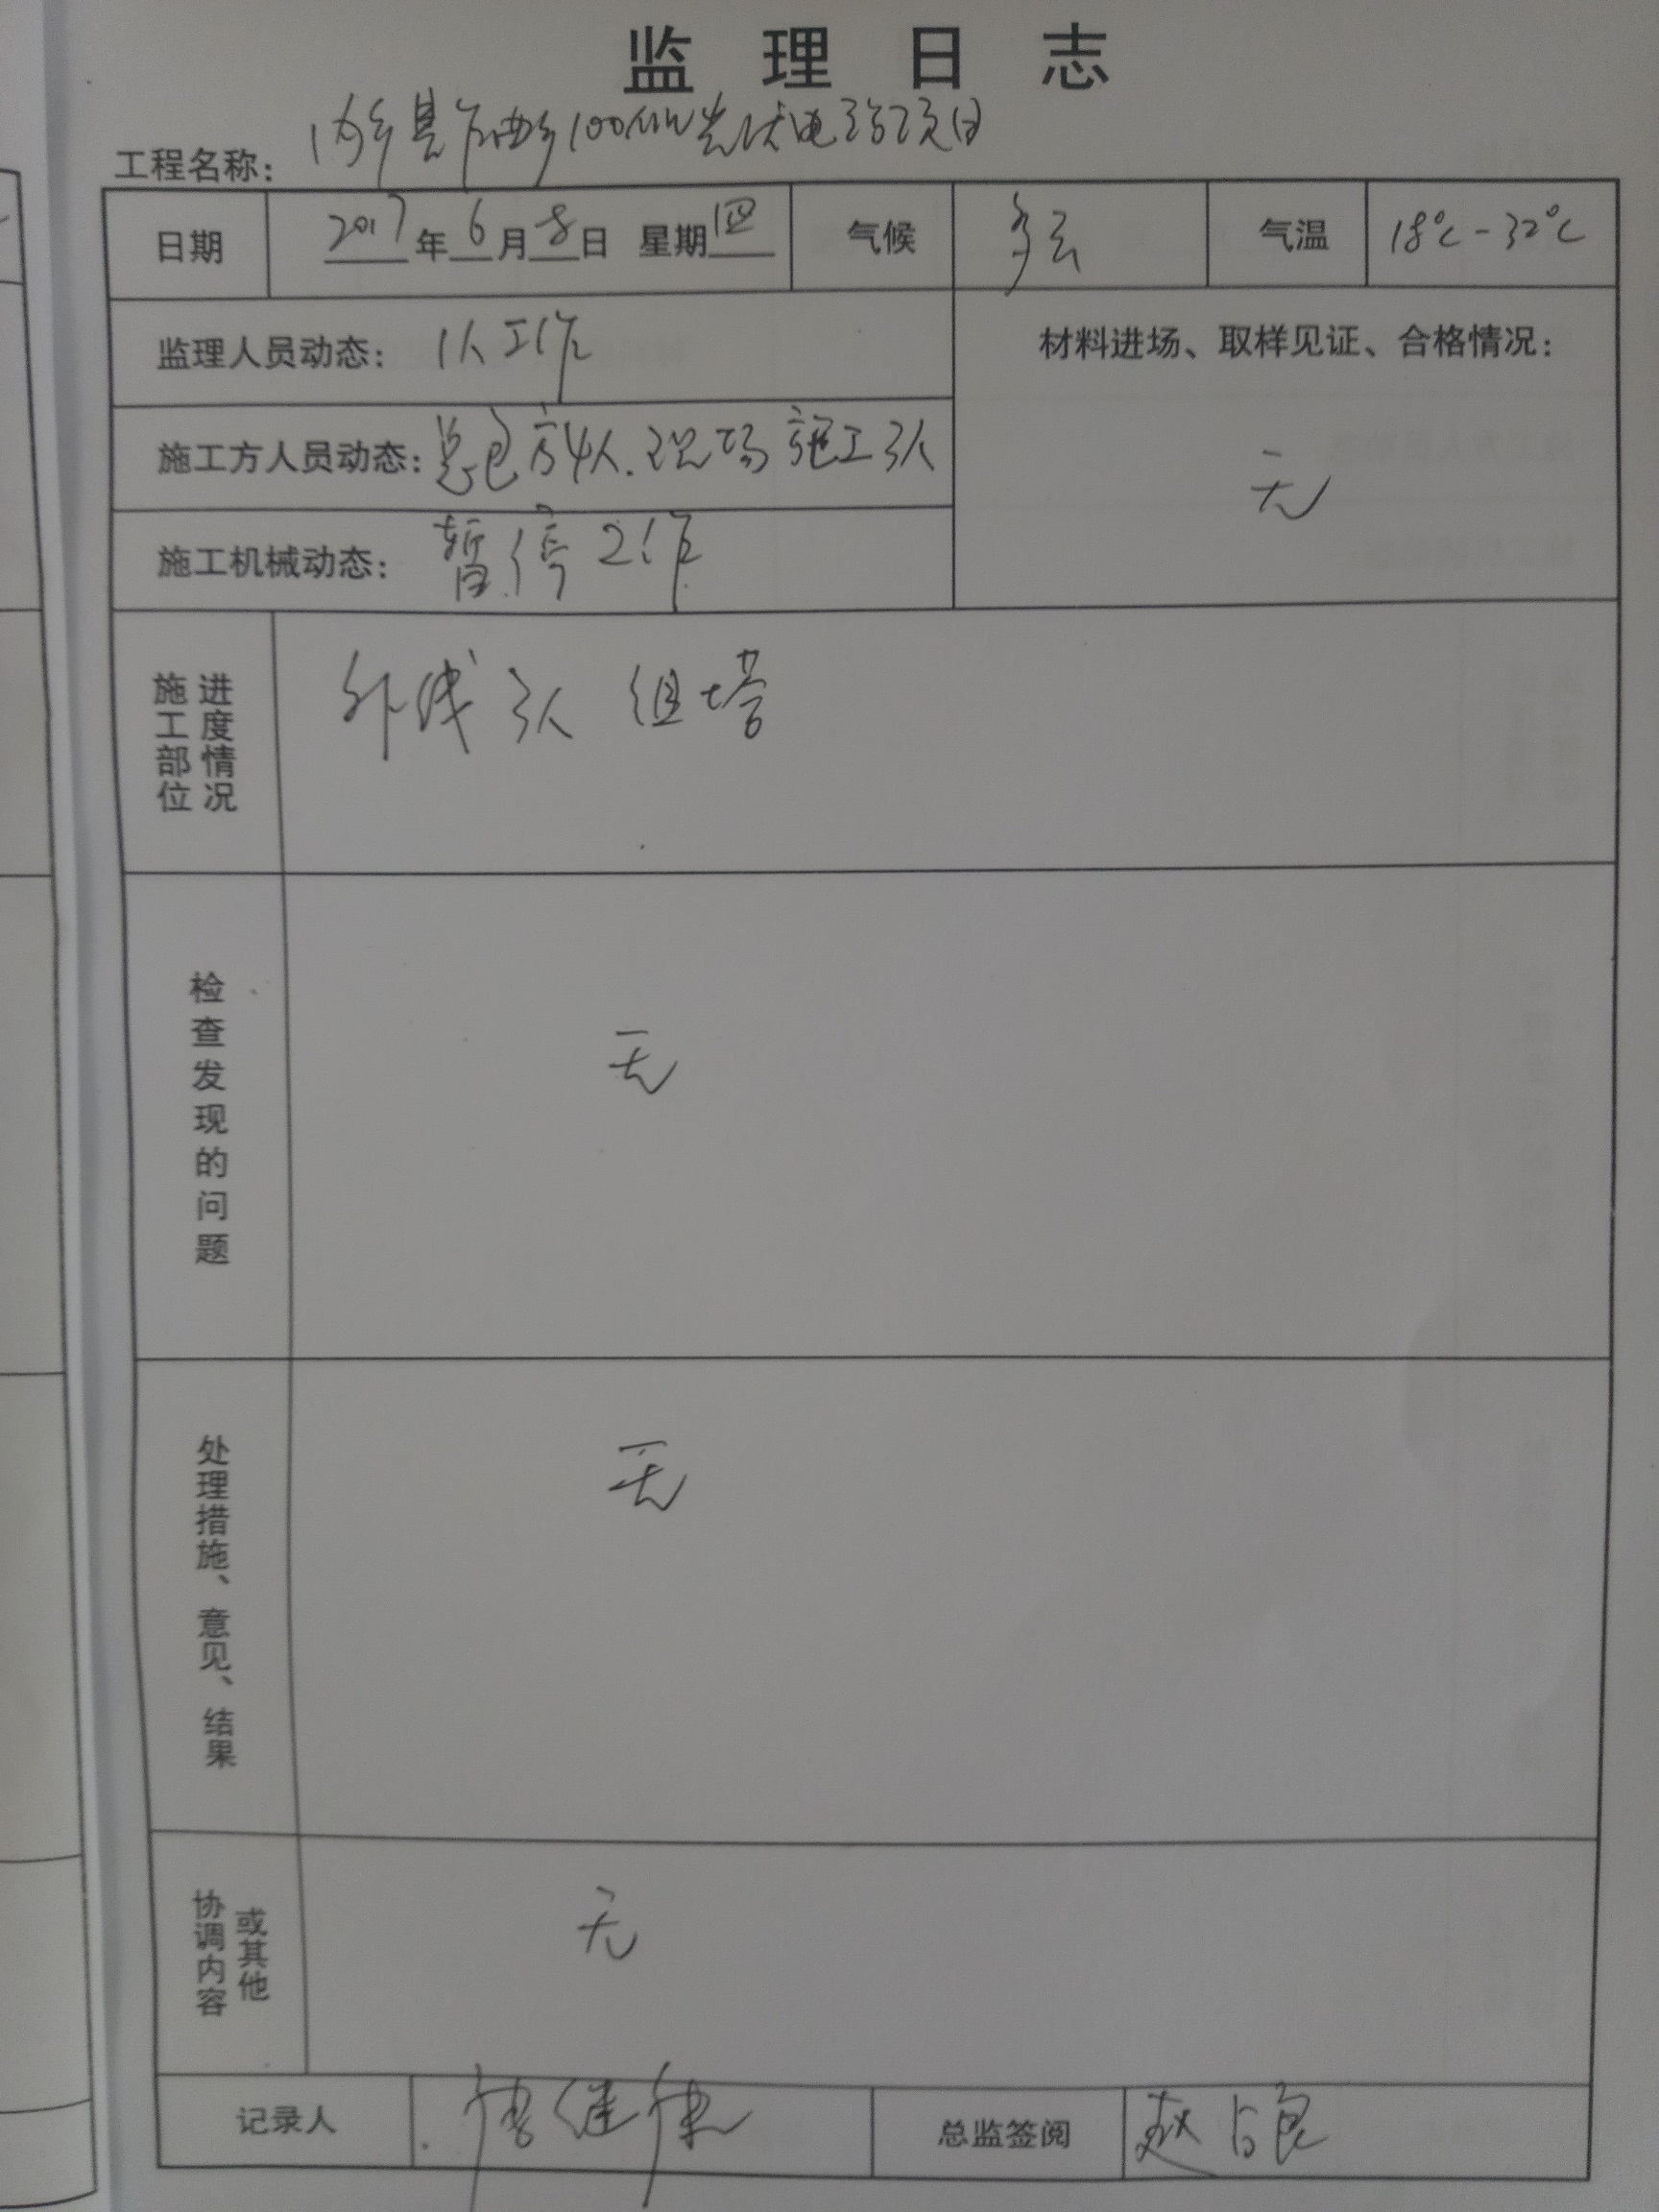 监理日志
工程名称: 内乡县乍曲乡100MW光伏电站项目
日期 2017年6月8日 星期四 气候 多云 气温 18℃-32℃
监理人员动态: 1人工作
材料进场、取样见证、合格情况:
无
施工方人员动态: 总包方4人.现场施工3人
施工机械动态: 暂停工作
施工部位 进度情况
外线3人 组塔
检查发现的问题
无
处理措施、意见、结果
无
协调内容 或其他
无
记录人 总监签阅 赵